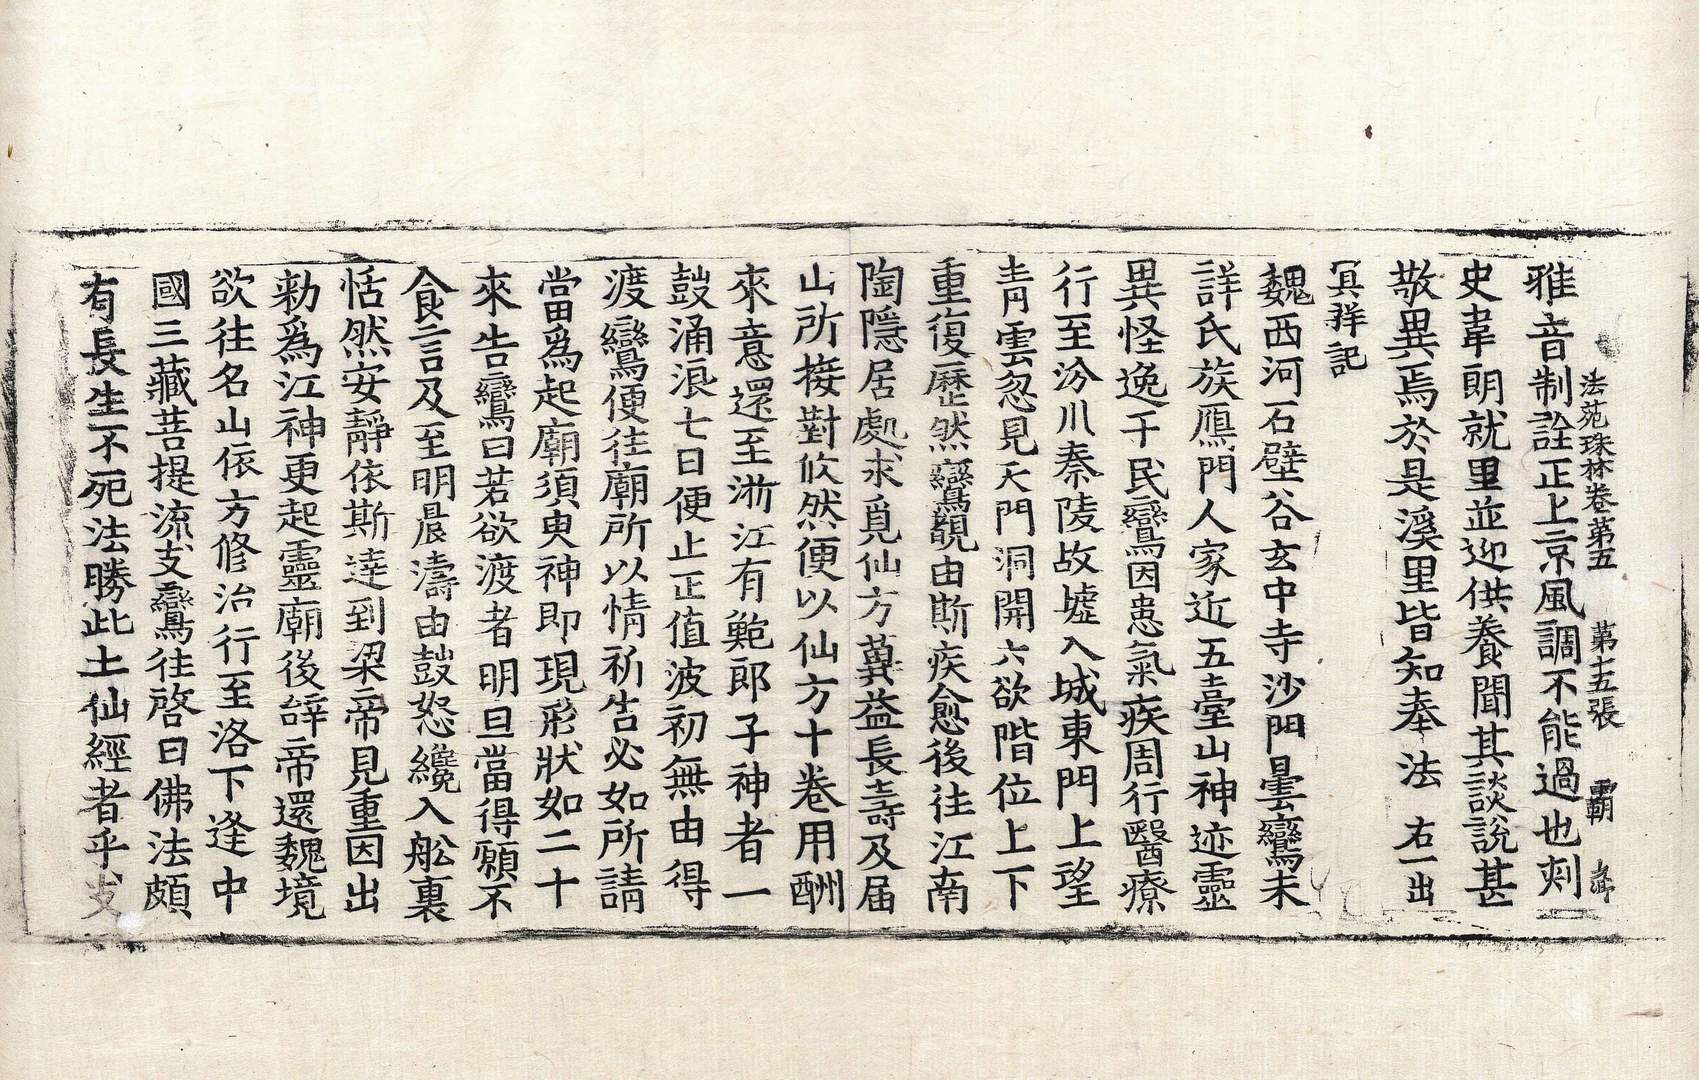 法苑珠林卷第五　第十五張　霸
雅音制詮正上京風調不能過也刺
史韋朗就里並迎供養聞其談說甚
敬異焉於是溪里皆知奉法 右一出
冥祥記
魏西河石壁谷玄中寺沙門曇鸞未
詳氏族鴈門人家近五臺山神迹靈
異怪逸于民鸞因患氣疾周行醫療
行至汾川秦陵故墟入城東門上望
青雲忽見天門洞開六欲階位上下
重復歷然鸞覩由斯疾愈後往江南
陶隱居處求覓仙方冀益長壽及届
山所接對欣然便以仙方十卷用酬
來意還至浙江有鮑郎子神者一
鼓涌浪七日便止正值波初無由得
渡鸞便往廟所以情祈告必如所請
當爲起廟須臾神即現形狀如二十
來告鸞曰若欲渡者明旦當得願不
食言及至明晨濤由鼓怒纔入舩裏
恬然安靜依斯達到梁帝見重因出
勑爲江神更起靈廟後辝帝還魏境
欲往名山依方修治行至洛下逢中
國三藏菩提流支鸞往啓曰佛法頗
有長生不死法勝此土仙經者乎支